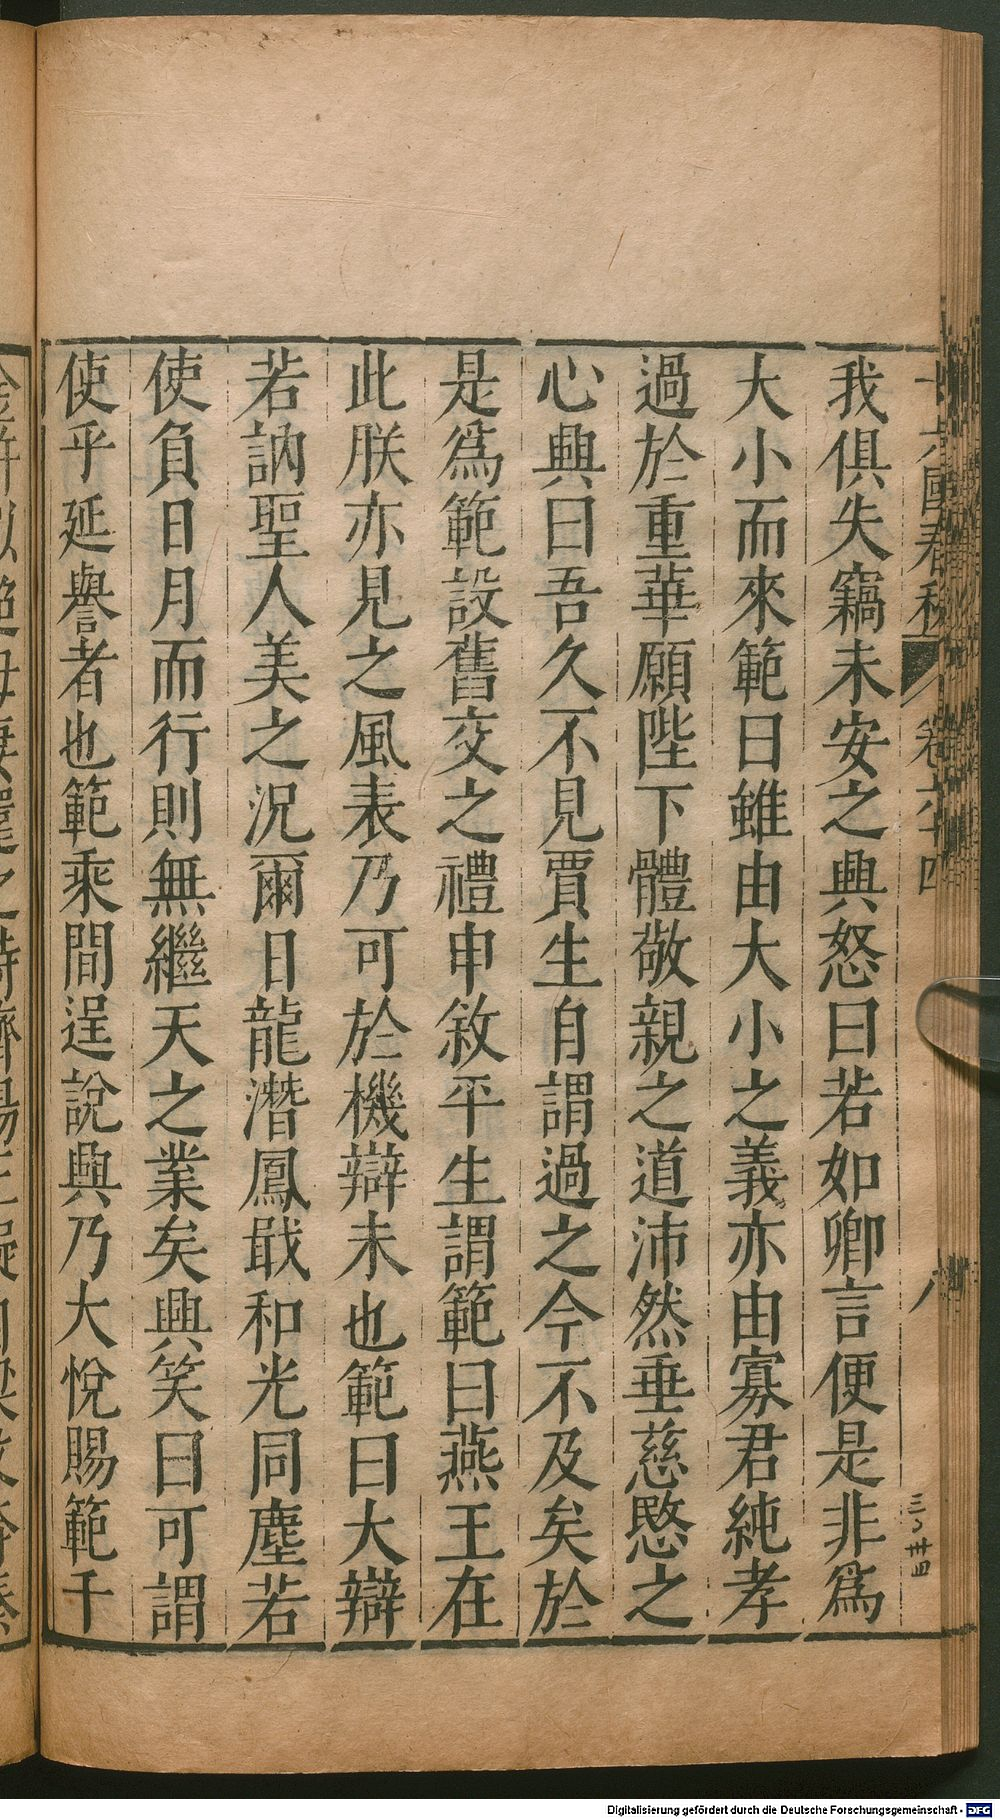 十六國春秋 卷六十四 八
我俱失竊未安之興怒曰若如卿言便是非爲
大小而來範曰雖由大小之義亦由寡君純孝
過於重華願陛下體敬親之道沛然垂慈愍之
心興曰吾久不見賈生自謂過之今不及矣於
是爲範設舊交之禮申敘平生謂範曰燕王在
此朕亦見之風表乃可於機辯未也範曰大辯
若訥聖人美之況爾日龍潛鳳戢和光同塵若
使負日月而行則無繼天之業矣興笑曰可謂
使乎延譽者也範乘間逞說興乃大悅賜範千
Digitalisierung gefördert durch die Deutsche Forschungsgemeinschaft - DFG